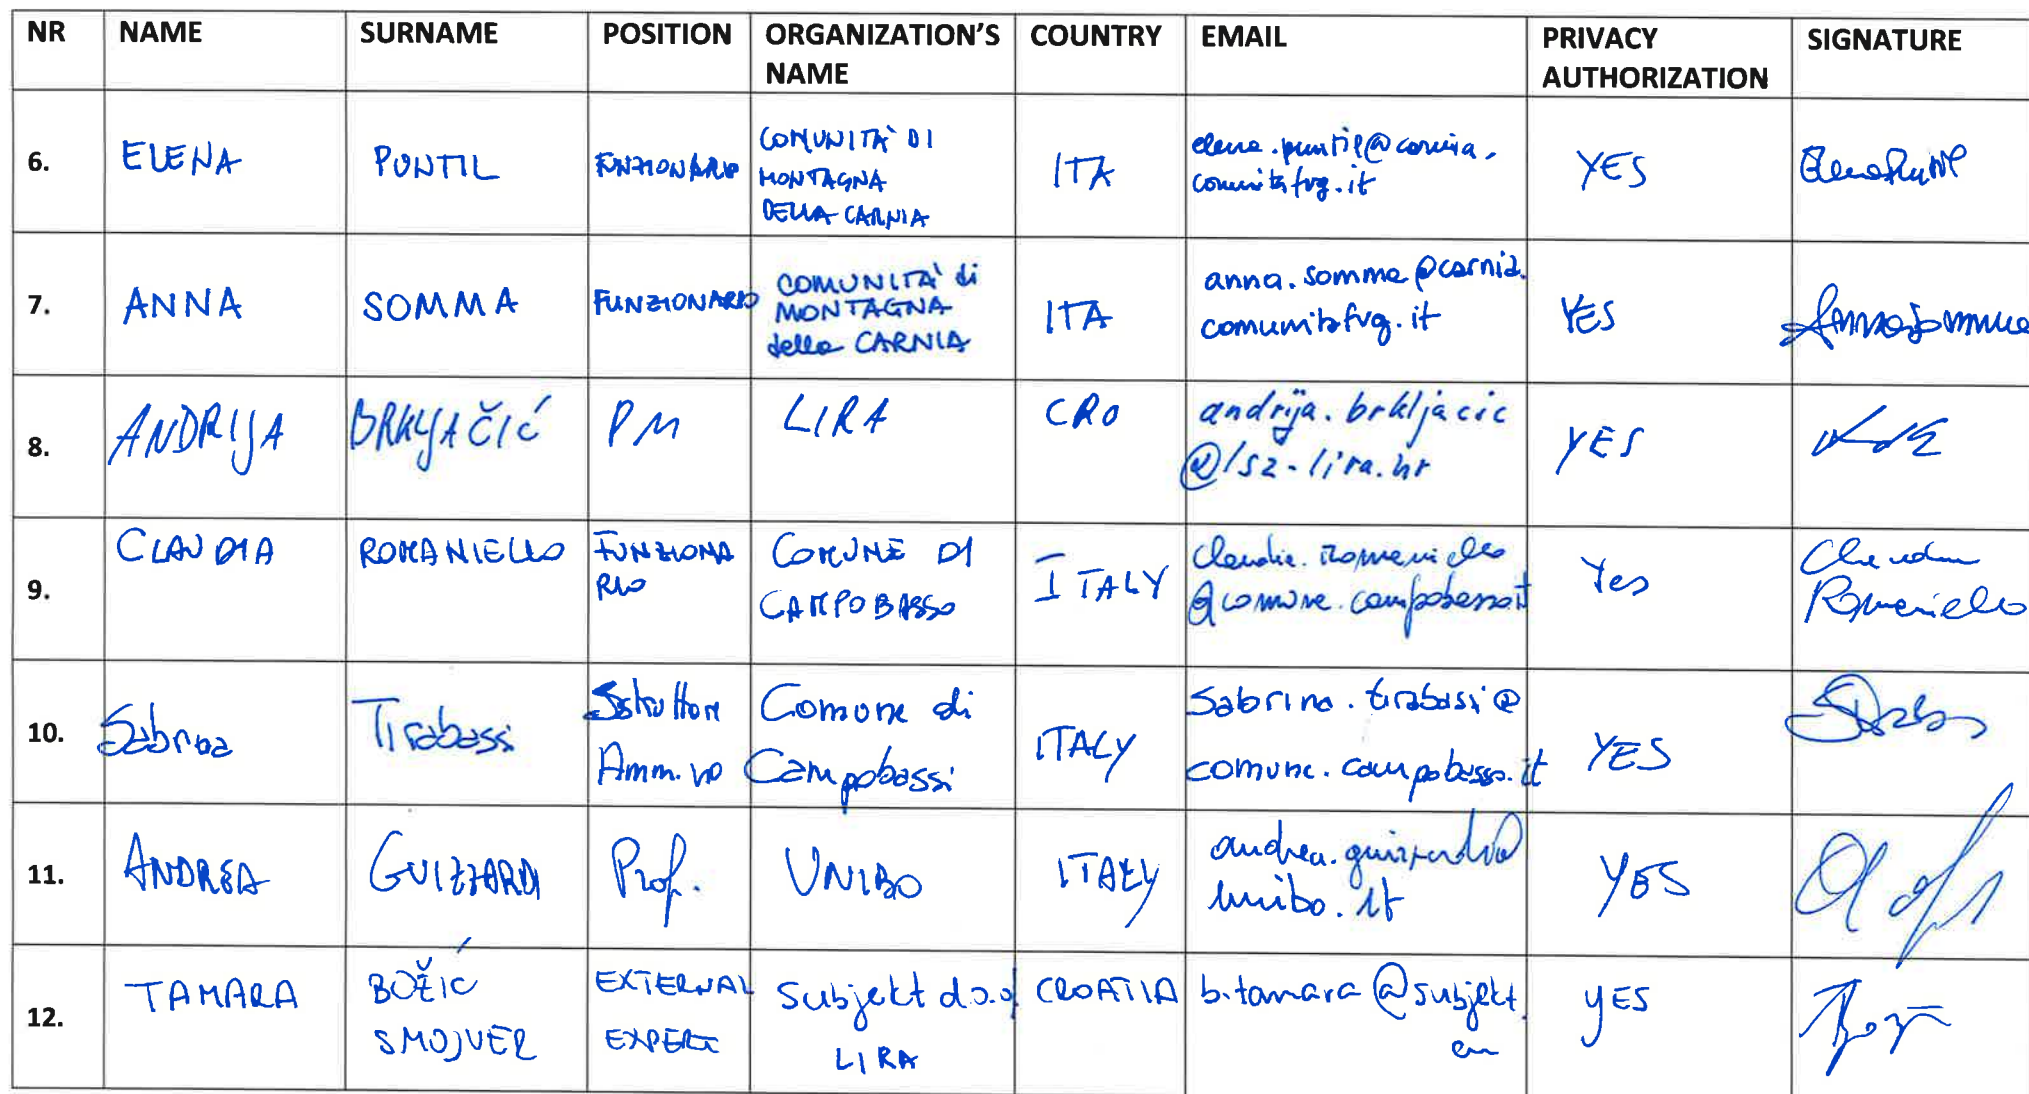 NR NAME SURNAME POSITION ORGANIZATION'S NAME COUNTRY EMAIL PRIVACY AUTHORIZATION SIGNATURE
6. ELENA PUNTIL FUNZIONARIO COMUNITÀ DI MONTAGNA DELLA CARNIA ITA elena.puntil@carnia.comunitafvg.it YES Elena Puntil
7. ANNA SOMMA FUNZIONARIO COMUNITÀ di MONTAGNA della CARNIA ITA anna.somma@carnia.comunitafvg.it YES Anna Somma
8. ANDRIJA BRKLJAČIĆ PM LIRA CRO andrija.brkljacic@lsz-lira.hr YES
9. CLAUDIA ROMANIELLO FUNZIONARIO COMUNE DI CAMPOBASSO ITALY claudia.romaniello@comune.campobasso.it Yes Claudia Romaniello
10. Sabrina Tirabassi Istruttore Amm.vo Comune di Campobassi ITALY Sabrina.tirabassi@comune.campobasso.it YES
11. ANDREA GUIZZARDI Prof. UNIBO ITALY andrea.guizzardi@unibo.it YES
12. TAMARA BOŽIĆ SMOJVER EXTERNAL EXPERT Subjekt d.o.o. LIRA CROATIA b.tamara@subjekt. YES